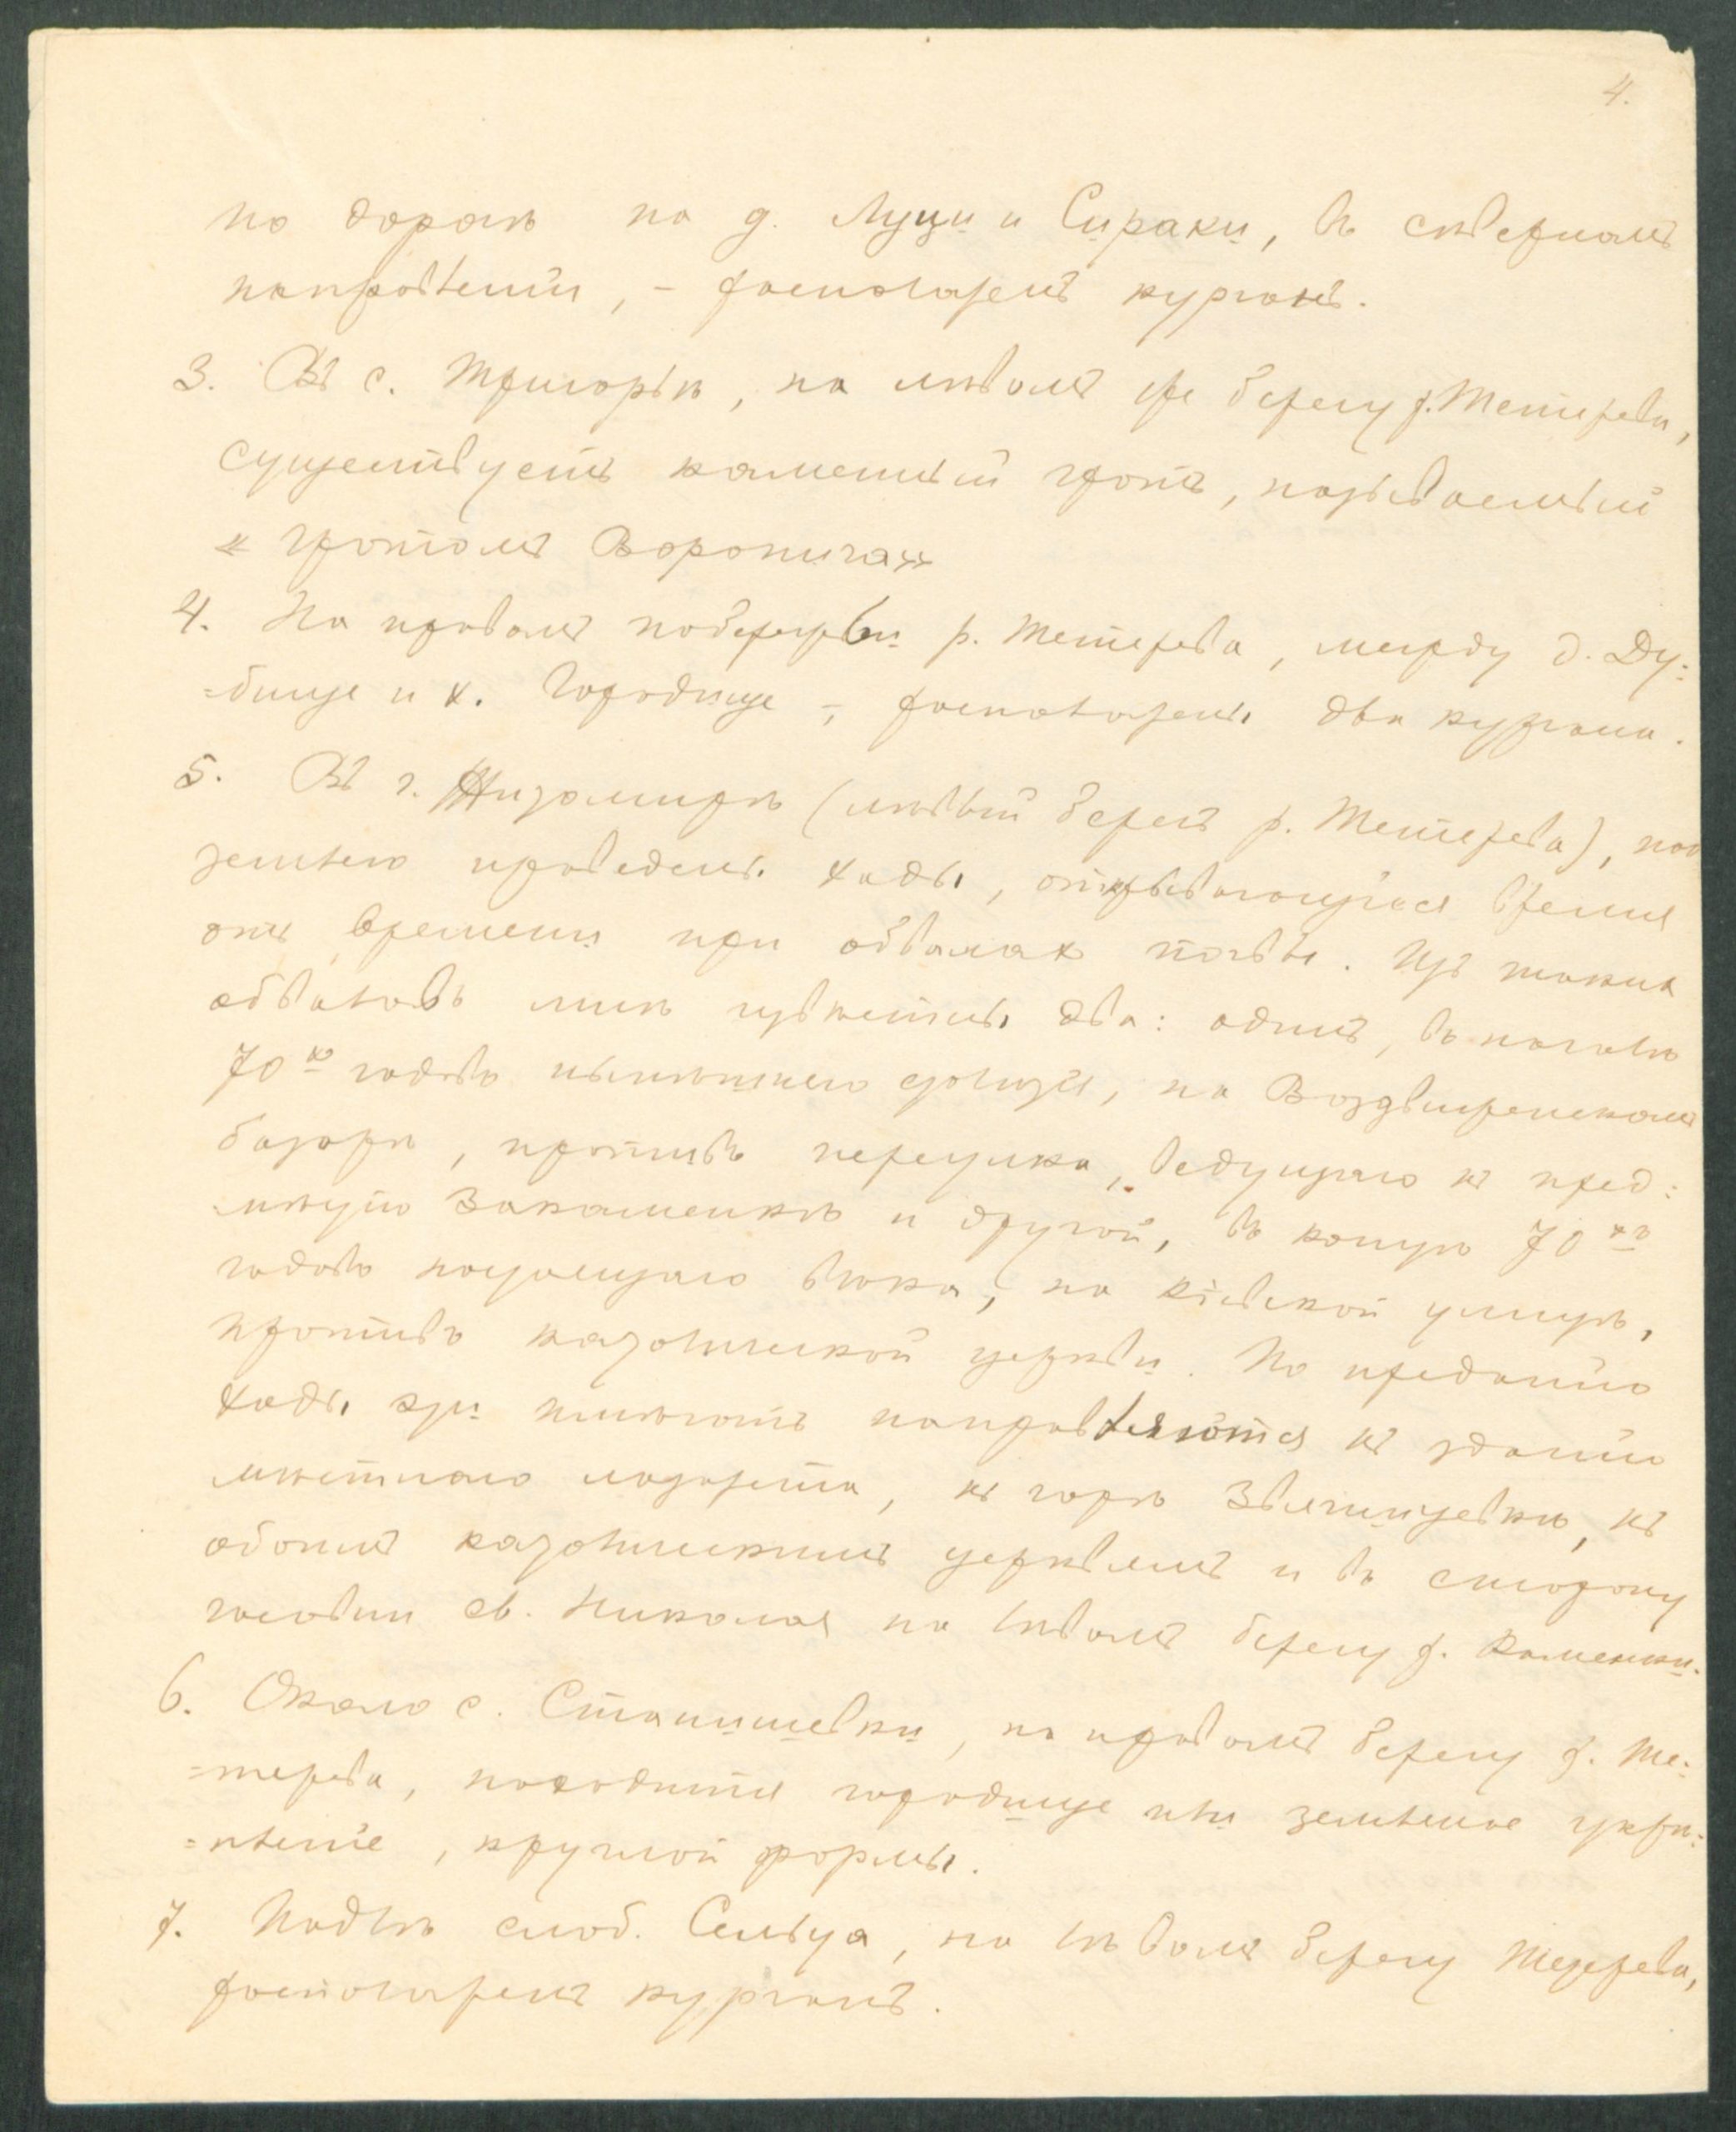 4.
по дорогѣ на д. Луци и Сираки, въ сѣверномъ
направленіи, – расположенъ курганъ.
3. Въ с. Тригорьѣ, на лѣвомъ же берегу р. Тетерева,
существуетъ каменный гротъ, называемый
« гротомъ Воротыга»
4. На правомъ побережьи р. Тетерева, между д. Ду=
=бище и х. Городище – расположены два кургана.
5. Въ г. Житомирѣ (лѣвый берегъ р. Тетерева), подъ
землею проведены ходы, открывающіеся время
отъ времени при обвалахъ почвы. Изъ такихъ
обваловъ мнѣ извѣстны два: одинъ, въ началѣ
70хъ годовъ нынѣшняго столѣтія, на Воздвиженскомъ
базарѣ, противъ переулка, ведущаго къ пред=
=мѣстью Закаменкѣ и другой, въ концѣ 70хъ
годовъ настоящаго вѣка, на Кіевской улицѣ,
противъ католической церкви. По преданію
ходы эти направляются къ зданію
мѣстнаго лазарета, къ горѣ Звягинцевкѣ, къ
обоимъ католическимъ церквямъ и въ сторону
часовни св. Николая на лѣвомъ берегу р. Каменки.
6. Около с. Станишевки, на правомъ берегу р. Те=
=терева, находится городище или земляное укрѣ=
=пленіе, круглой формы.
7. Подлѣ слоб. Сельца, на лѣвомъ берегу Тетерева,
расположенъ курганъ.